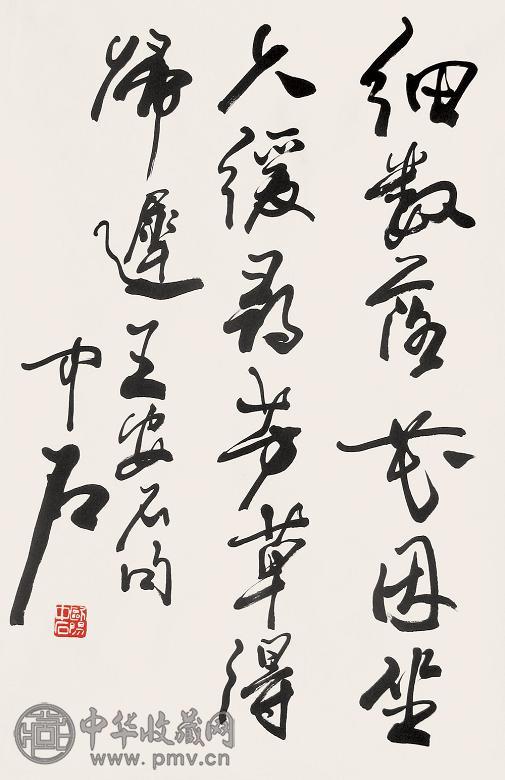 细数落花因坐
久缓寻芳草得
归遲王安石句
中石
歐陽中石
中华收藏网
www.pmv.cn